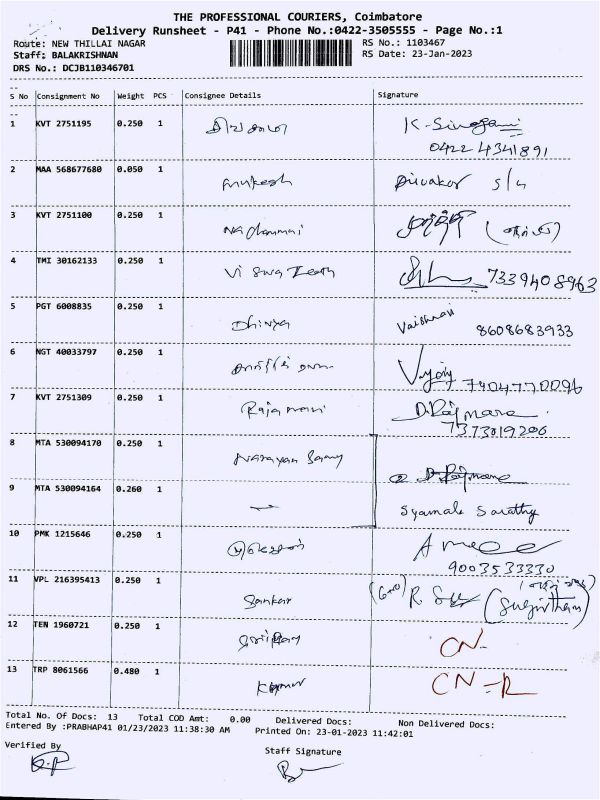 THE PROFESSIONAL COURIERS, Coimbatore
Delivery Runsheet - P41 - Phone No.:0422-3505555 - Page No.:1
Route: NEW THILLAI NAGAR RS No.: 1103467
Staff: BALAKRISHNAN RS Date: 23-Jan-2023
DRS No.: DCJB110346701
S No Consignment No Weight PCS Consignee Details Signature
1 KVT 2751195 0.250 1
0422 4341891
2 MAA 568677680 0.050 1
Mukesh Divakar
3 KVT 2751100 0.250 1
4 TMI 30162133 0.250 1
Viswanath 7339408963
5 PGT 6008835 0.250 1
Dhivya Vaishnavi 8608683933
6 NGT 40033797 0.250 1
7404770096
7 KVT 2751309 0.250 1
Rajamani
7373019200
8 MTA 530094170 0.250 1
Narayan Samy
9 MTA 530094164 0.260 1
Syamala Sarathy
10 PMK 1215646 0.250 1
9003533330
11 VPL 216395413 0.250 1
Sankar
12 TEN 1960721 0.250 1
CN-
13 TRP 8061566 0.480 1
Kumar CN-R
Total No. Of Docs: 13 Total COD Amt: 0.00 Delivered Docs: Non Delivered Docs:
Entered By :PRABHAP41 01/23/2023 11:38:30 AM Printed On: 23-01-2023 11:42:01
Verified By Staff Signature